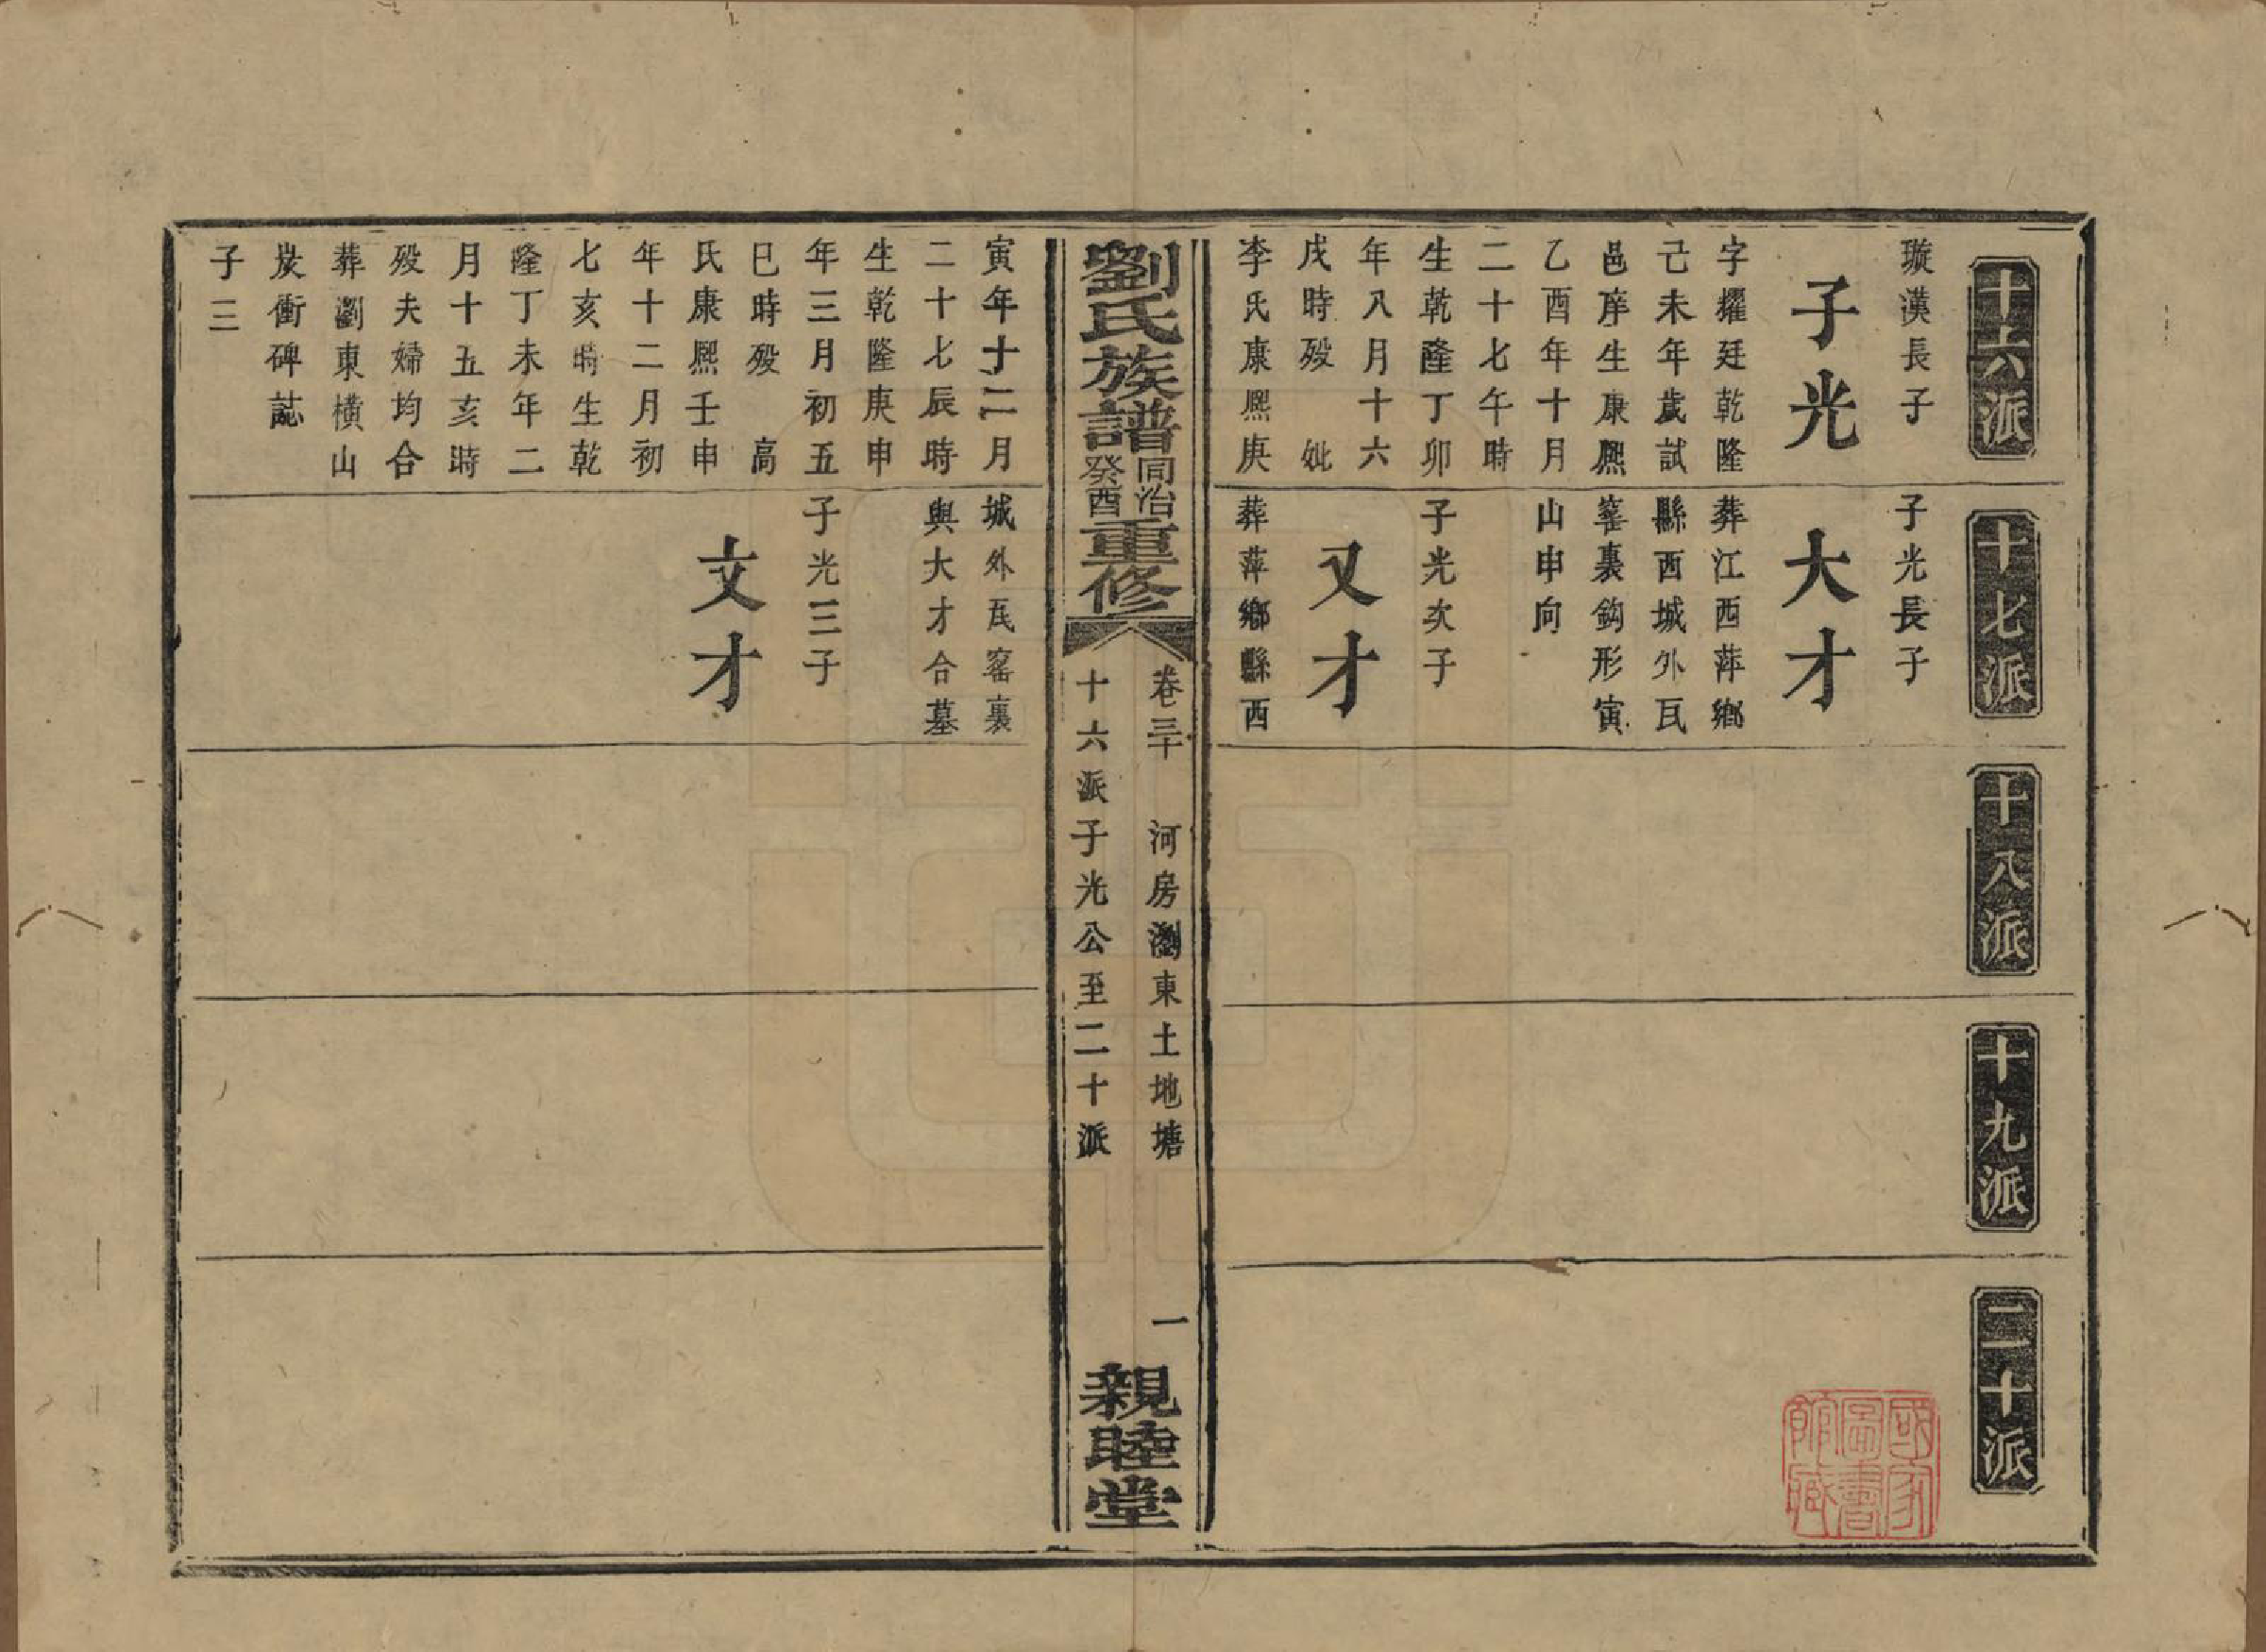 十六派
璇漢長子
子光
字擢廷乾隆
己未年歲試
邑庠生康熙
乙酉年十月
二十七午時
生乾隆丁卯
年八月十六
戌時殁　妣
李氏康熙庚
寅年十二月
二十七辰時
生乾隆庚申
年三月初五
巳時殁　高
氏康熙壬申
年十二月初
七亥時生乾
隆丁未年二
月十五亥時
殁夫婦均合
葬瀏東橫山
炭衝碑誌
子三
十七派
子光長子
大才
葬江西萍鄉
縣西城外瓦
窰裏鈎形寅
山申向
子光次子
又才
葬萍鄉縣西
城外瓦窰裏
與大才合墓
子光三子
文才
十八派
十九派
二十派
劉氏族譜
同治
癸酉
重修
卷三十　河房瀏東土地塘
十六派子光公至二十派
一
親睦堂
國家
圖書
館藏